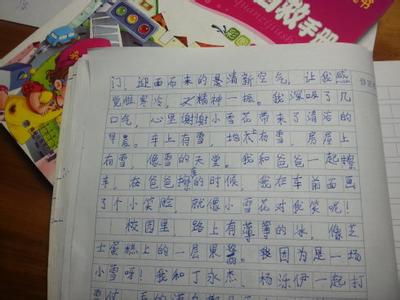 自救手册
门！迎面而来的是清新空气，让我感
觉胜寒冷，又精神一振。我深吸了几
口气，心里谢谢小雪花带来了清洁的
早晨。车上有雪，地衣有雪，房屋上
有雪，像雪的天堂。我和爸爸一起擦
车，在爸爸擦的时候，我在车前面画
了个小笑脸，就像小雪花对我笑呢！
校园里，路上有薄薄的冰，像芝
士蛋糕上的一层果酱。我因为是一场
小雪呀！我和丁永杰，杨泺伊一起打